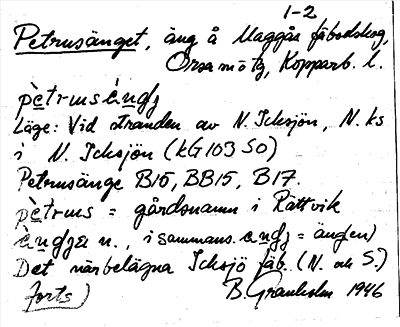 1-2
Petrusänget, äng å Maggås fäbodskog,
Orsa mötg, Kopparb. l.
pètrusè̀ngj
Läge: Vid stranden av N. Icksjön, N. ks
i N. Icksjön (KG 103 SO)
Petrusänge B15, BB15, B17.
pètrus = gårdsnamn i Rättvik
èngja n., i sammans. engj = ängen)
Det närbelägna Icksjö fäb. (N. och S.)
forts) B. Granholm 1946